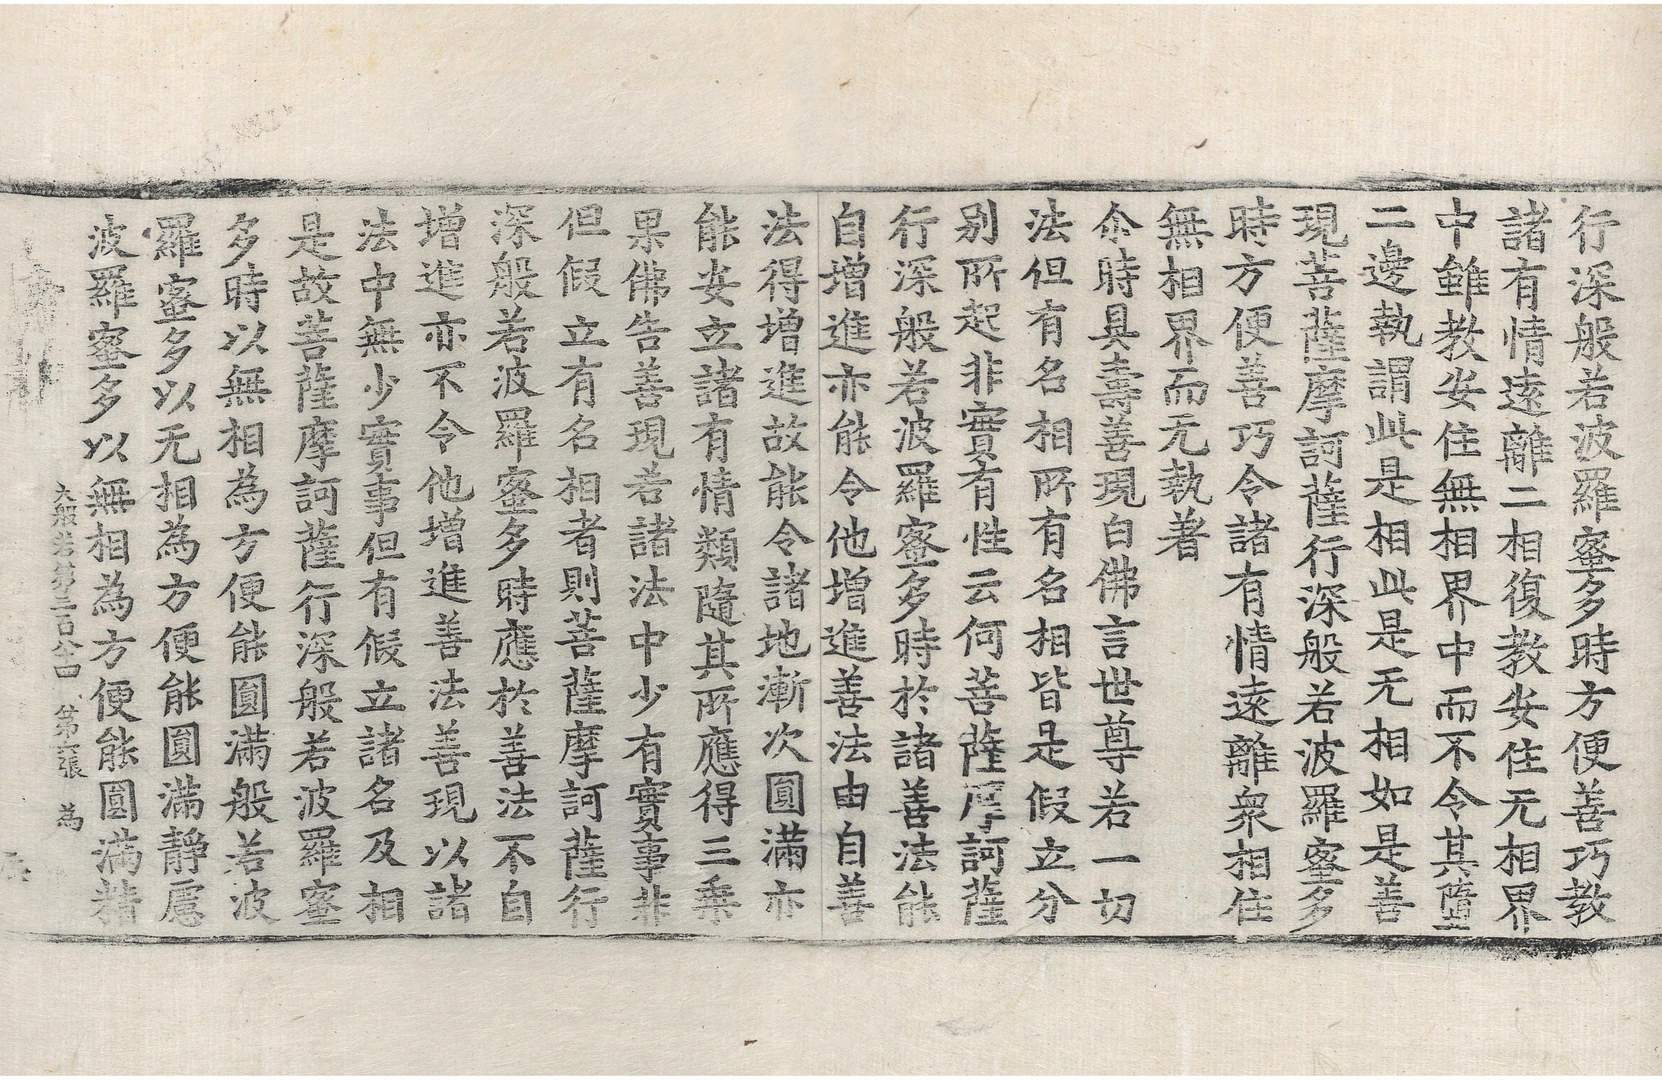 行深般若波羅蜜多時方便善巧教
諸有情遠離二相復教安住无相界
中雖教安住無相界中而不令其墮
二邊執謂此是相此是无相如是善
現菩薩摩訶薩行深般若波羅蜜多
時方便善巧令諸有情遠離衆相住
無相界而无執著
尒時具壽善現白佛言世尊若一切
法但有名相所有名相皆是假立分
別所起非實有性云何菩薩摩訶薩
行深般若波羅蜜多時於諸善法能
自增進亦能令他增進善法由自善
法得增進故能令諸地漸次圓滿亦
能安立諸有情類隨其所應得三乘
果佛告善現若諸法中少有實事非
但假立有名相者則菩薩摩訶薩行
深般若波羅蜜多時應於善法不自
增進亦不令他增進善法善現以諸
法中無少實事但有假立諸名及相
是故菩薩摩訶薩行深般若波羅蜜
多時以無相為方便能圓滿般若波
羅蜜多以无相為方便能圓滿靜慮
波羅蜜多以無相為方便能圓滿精
大般若第三百八十四 第六張 為